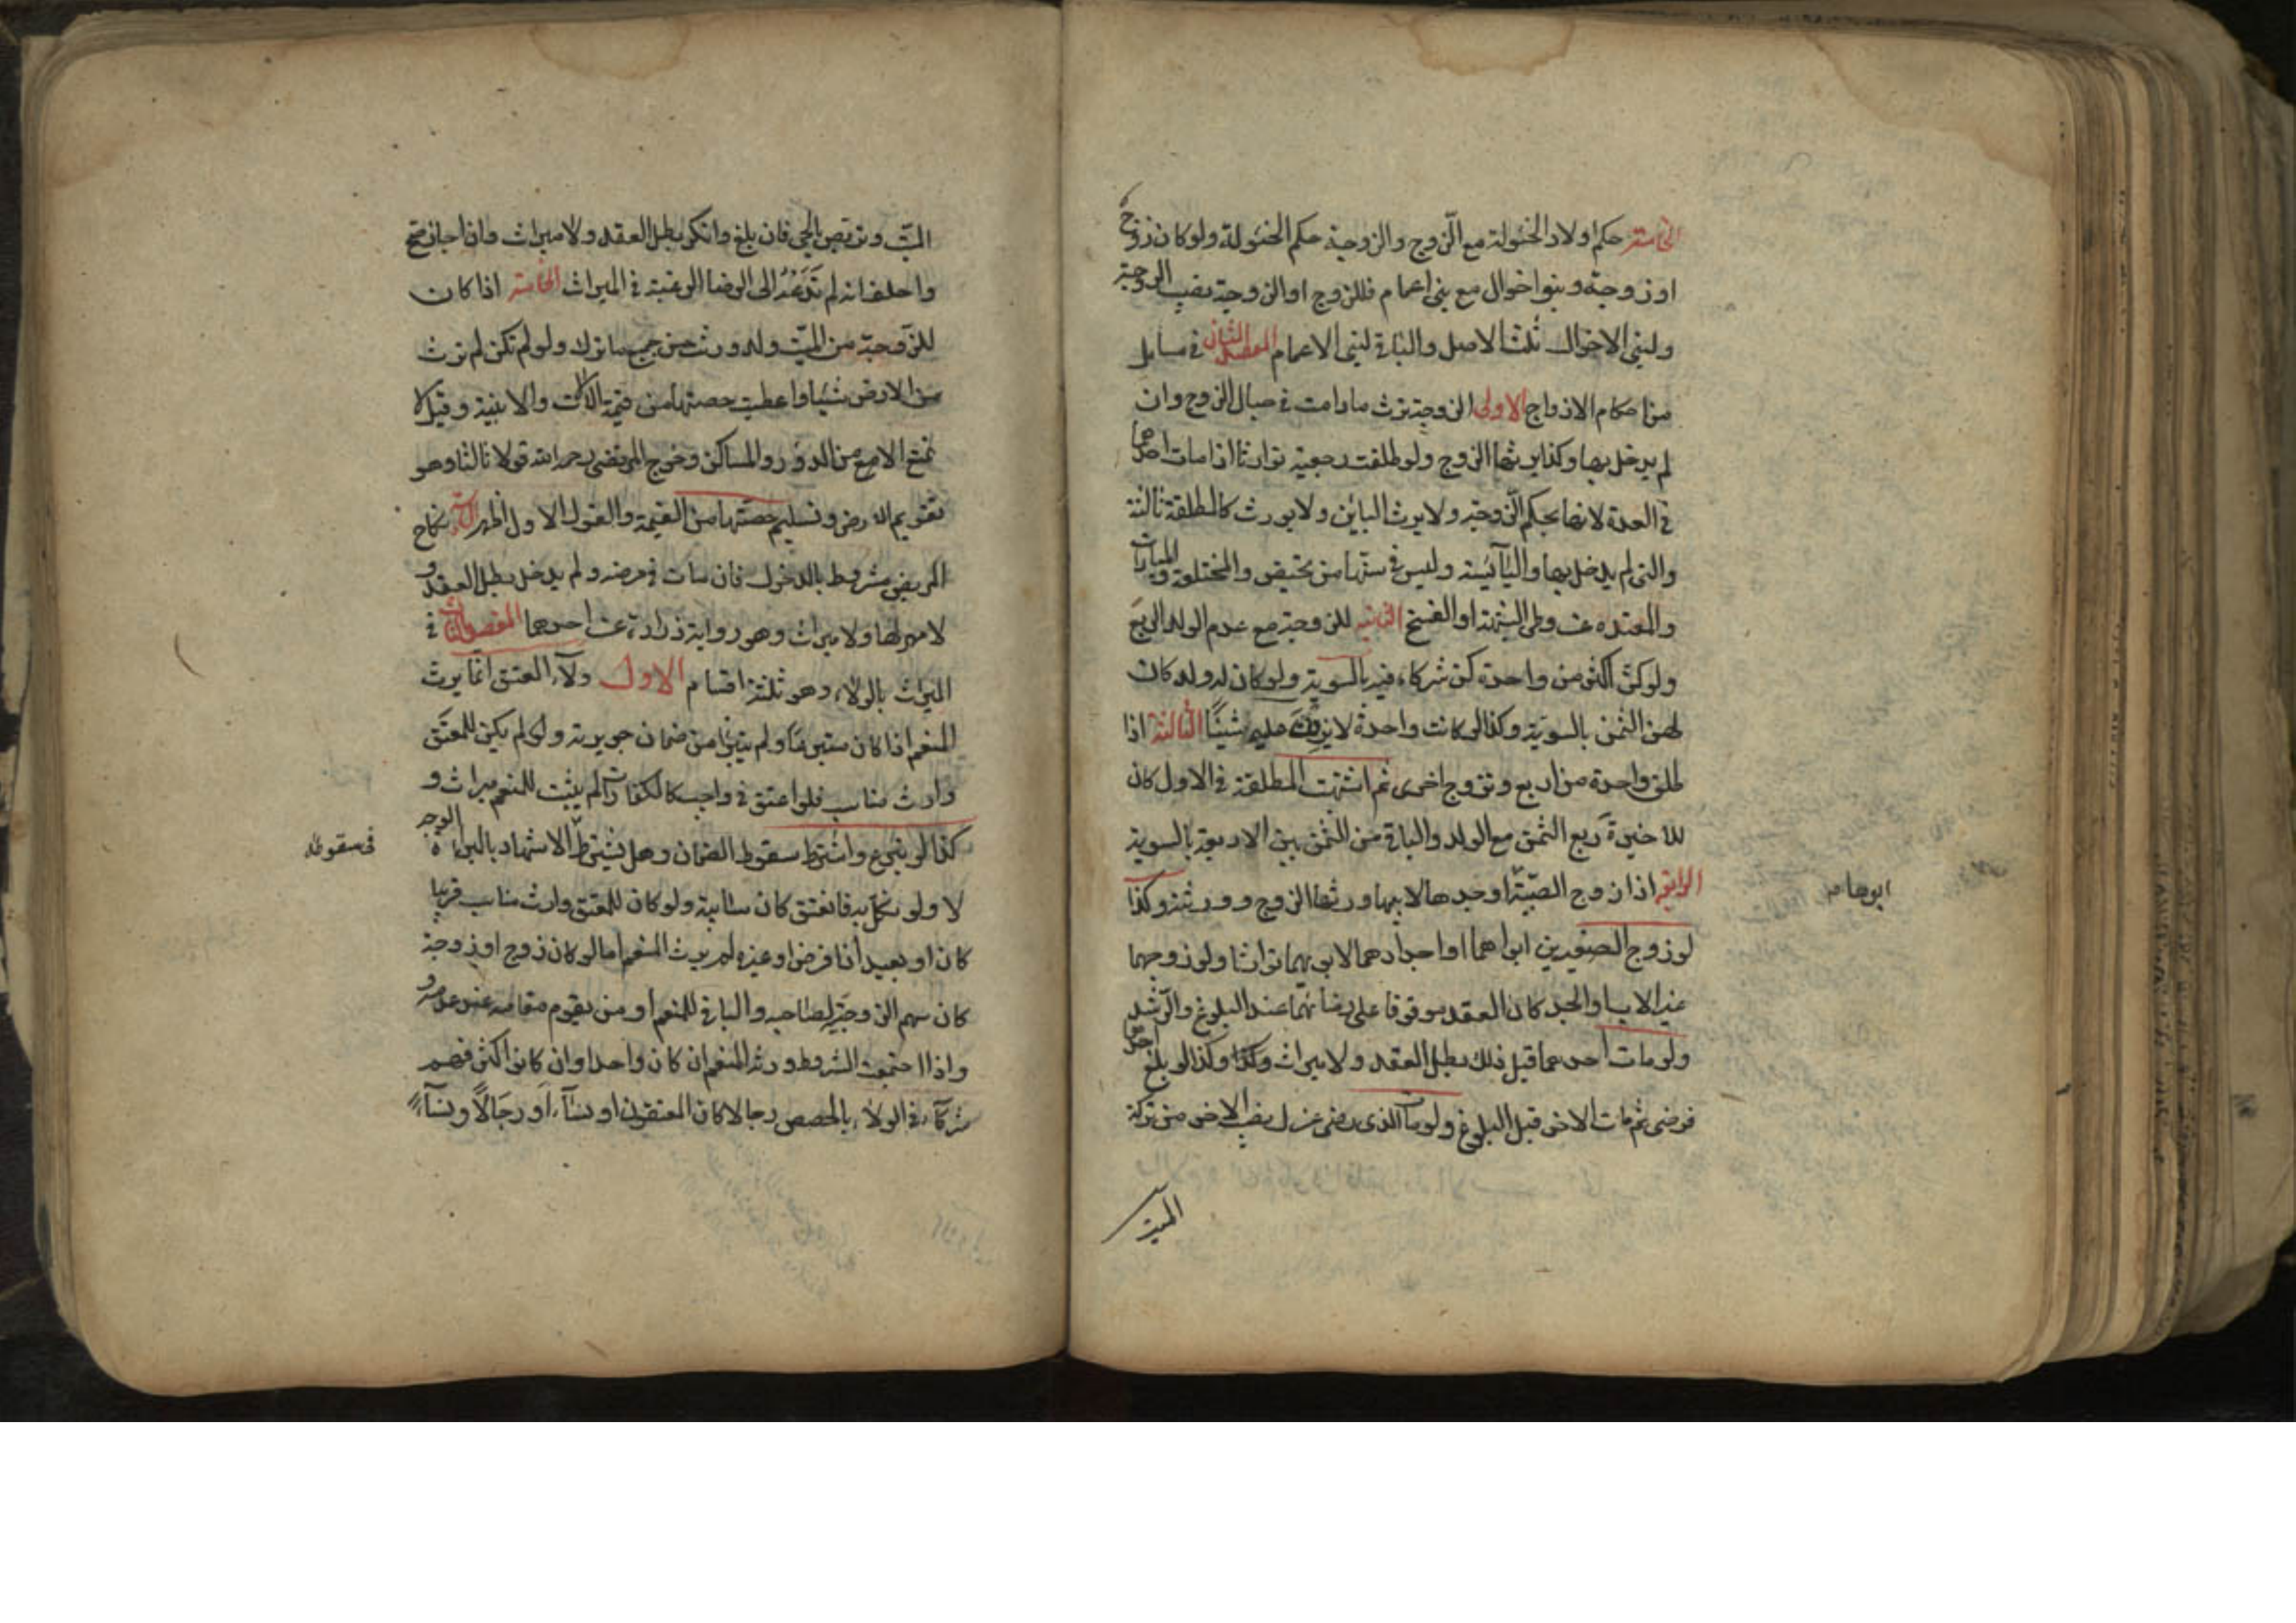 الخامسة حكم اولاد الخئولة مع الزوج والزوجية حكم الخئولة ولو كان زوج
او زوجة وبنوا اخوال مع بنى اعمام فللزوج او الزوجية نصيب الزوجية
ولبنى الاخوال ثلث الاصل والباقى لبنى الاعمام المقصد الثانى فى مسايل
من احكام الازواج الاولى الزوجة ترث مادامت فى حبال الزوج وان
لم يدخل بها وكذا يرثها الزوج ولو طلقت رجعية توارثا اذا مات احدهما
فى العدة لانها بحكم الزوجة ولا يرث الباين ولا يورث كالمطلقة ثالثة
والتى لم يدخل بها واليآئسة وليس فى سنها من تحيض والمختلعة والمبارات
والمعتدة عن وطى الشبهة او الفسخ الثانية للزوجة مع عدم الولد الربع
ولو كن اكثر من واحدة كن شركاء فيه بالسوية ولو كان له ولد كان
لهن الثمن بالسوية وكذا لو كانت واحدة لا يزدن عليه شيئًا الثالثة اذا
طلق واحدة من اربع وتزوج اخرى ثم اشتبهت المطلقة فى الاول كان
للاخيرة ربع الثمن مع الولد والباقى من الثمن بين الاربعة بالسوية
الرابعة اذا زوج الصبية او جدها لابيها ورثها الزوج وورثته وكذا
ابوها
لو زوج الصغيرين ابواهما او اجدادهما لابويهما توارثا ولو زوجهما
غير الاب والجد كان العقد موقوفا على رضائهما عند البلوغ والرشد
ولو مات احدهما قبل ذلك بطل العقد ولا ميراث وكذا لو بلغ احدهما
فرضى ثم مات الاخر قبل البلوغ ولو مات الذى رضى عزل نصيب الاخر من تركة
الميت
الميّت وتربص بالحى فان بلغ وانكر بطل العقد ولا ميراث وان اجاز صح
واحلف انه لم تدعه الى الرضا الرغبة فى الميراث الخامسة اذا كان
للزوجة من الميّت ولد ورثت من جميع ما ترك ولو لم تكن لم ترث
من الارض شيئا واعطيت حصتها من قيمة الآلات والابنية وقيل لا
تمنع الا من الدور والمساكن وخرج المرتضى رحمه الله قولا ثالثا وهو
تقويم الارض وتسليم حصتها من القيمة والقول الاول اظهر السادسة نكاح
المريض مشروط بالدخول فان مات فى مرضه ولم يدخل بطل العقد و
لا مهر لها ولا ميراث وهو رواية زرارة عن احدهما المقصد الثالث فى
الميراث بالولاء وهو ثلثة اقسام الاول ولآء العتق انما يرث
المنعم اذا كان متبرعًا ولم يتبرا من ضمان جريرته ولم يكن للمعتق
وارث مناسب فلو اعتق فى واجب كالكفارات لم يثبت للمنعم ميراث و
كذا لو تبرع واشترط سقوط الضمان وهل يشترط الاشهاد بالبراءة الوجه
فى سقوطه
لا ولو نكل به فانعتق كان سائبة ولو كان للمعتق وارث مناسب قريبا
كان او بعيد اذا فرض او غيره لم يرث المنعم اما لو كان زوج او زوجة
كان سهم الزوجية لصاحبه والباقى للمنعم او من يقوم مقامه عند عدمه و
واذا اجتمعت الشروط ورثه المنعم ان كان واحدا وان كانوا اكثر فهم
شركآء فى الولاء بالحصص رجالا كان المعتقون او نسآء او رجالًا ونسآء